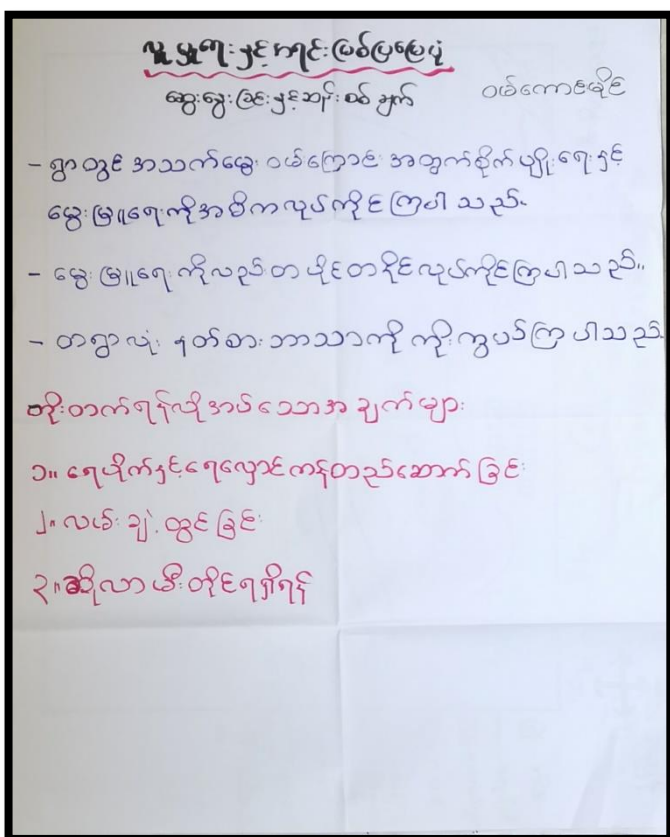 လူမှုရေးနှင့်အရင်းမြစ်ပြမြေပုံ
ဆွေးနွေးခြင်းနှင့်ဆန်းစစ်ချက်
ဝမ်ကောင်မိုင်
- ရွာတွင် အသက်မွေး ဝမ်းကြောင်း အတွက်စိုက်ပျိုးရေးနှင့်
မွေးမြူရေးကိုအဓိကလုပ်ကိုင်ကြပါသည်။
- မွေးမြူရေးကိုလည်းတပိုင်တနိုင်လုပ်ကိုင်ကြပါသည်။
- တရွာလုံး နတ်စားဘာသာကို ကိုးကွယ်ကြပါသည်
တိုးတက်ရန်လိုအပ်သောအချက်များ
၁။ ရေပိုက်နှင့်ရေလှောင်ကန်တည်ဆောက်ခြင်း
၂။ လမ်းချဲ့ထွင်ခြင်း
၃။ ဆိုလာမီးတိုင်ရရှိရန်